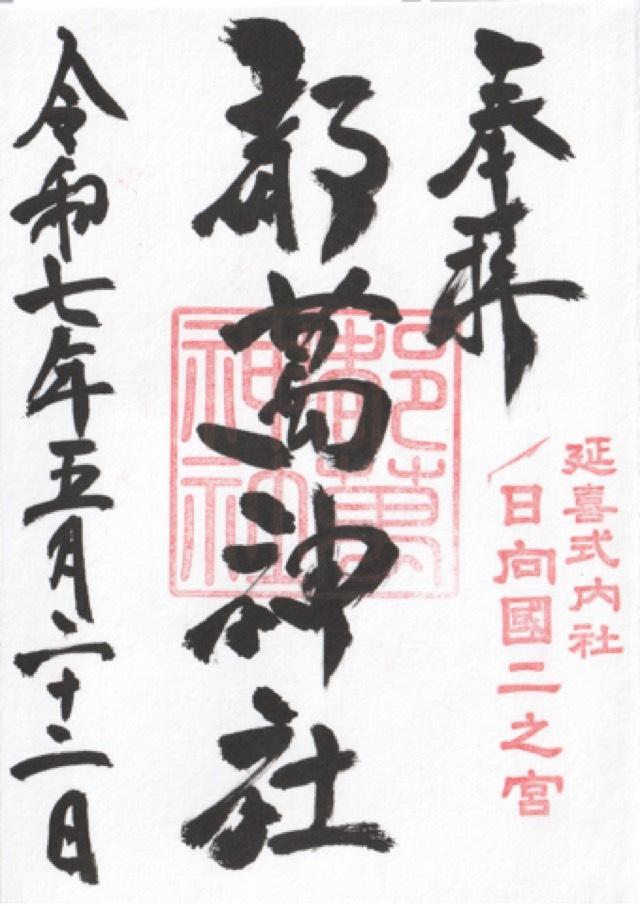 奉拝
延喜式内社
日向國二之宮
都萬神社
都萬
神社
令和七年五月二十二日